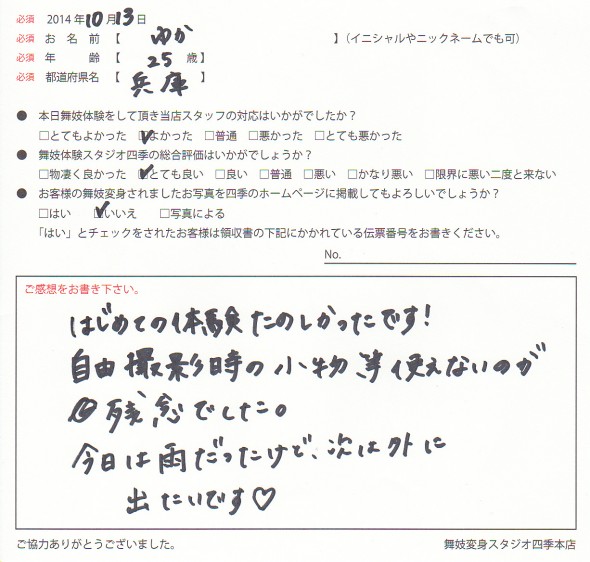 必須 2014年10月13日
必須 お名前【 ゆか 】(イニシャルやニックネームでも可)
必須 年齢【 25 歳】
必須 都道府県名【 兵庫 】
● 本日舞妓体験をして頂き当店スタッフの対応はいかがでしたか?
□とてもよかった ☑よかった □普通 □悪かった □とても悪かった
● 舞妓体験スタジオ四季の総合評価はいかがでしょうか?
□物凄く良かった ☑とても良い □良い □普通 □悪い □かなり悪い □限界に悪い二度と来ない
● お客様の舞妓変身されましたお写真を四季のホームページに掲載してもよろしいでしょうか?
□はい ☑いいえ □写真による
「はい」とチェックをされたお客様は領収書の下記にかかれている伝票番号をお書きください。
No.
ご感想をお書き下さい。
はじめての体験たのしかったです!
自由撮影時の小物等使えないのが
残念でした。
今日は雨だったけど、次は外に
出たいです♡
ご協力ありがとうございました。 舞妓変身スタジオ四季本店